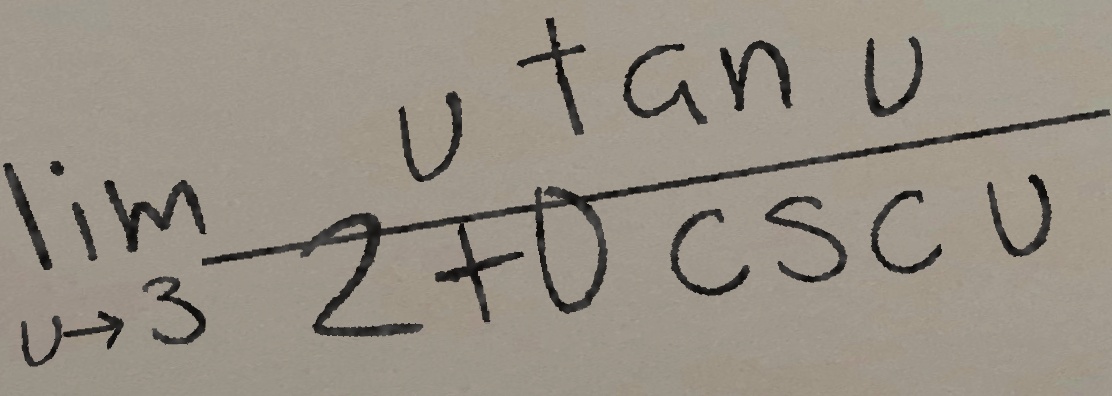 lim_{u→3} \frac{u tan u}{2+0 csc u}